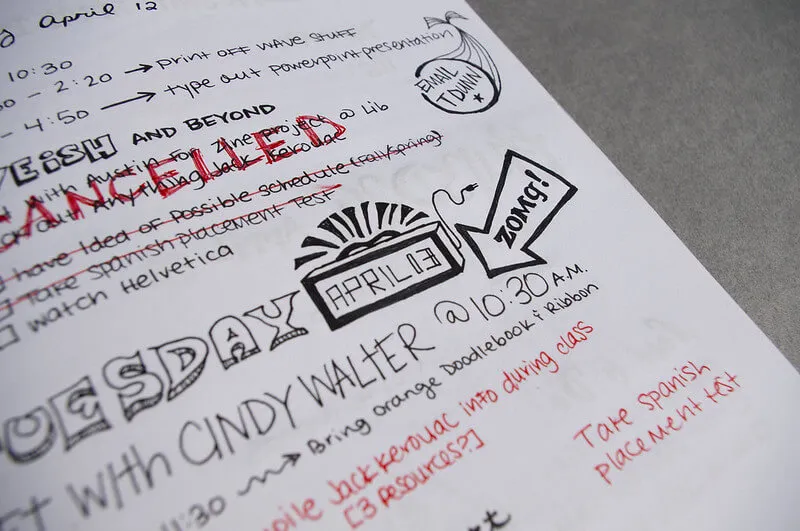 april 12
10:30
- 2:20 → print off wave stuff
- 4:50 → type out powerpoint presentation
EMAIL T DUNN
AND BEYOND
with Austin for zine project @ Lib
CANCELLED
Anything Jack Kerouac
have Idea of Possible schedule (fall/spring)
Take Spanish Placement Test
watch Helvetica
ZOMG!
APRIL 13
TUESDAY
with CINDY WALTER @ 10:30 A.M.
11:30 → Bring orange Doodlebook & Ribbon
Jack Kerouac info during class
[3 Resources?]
Take Spanish
placement test